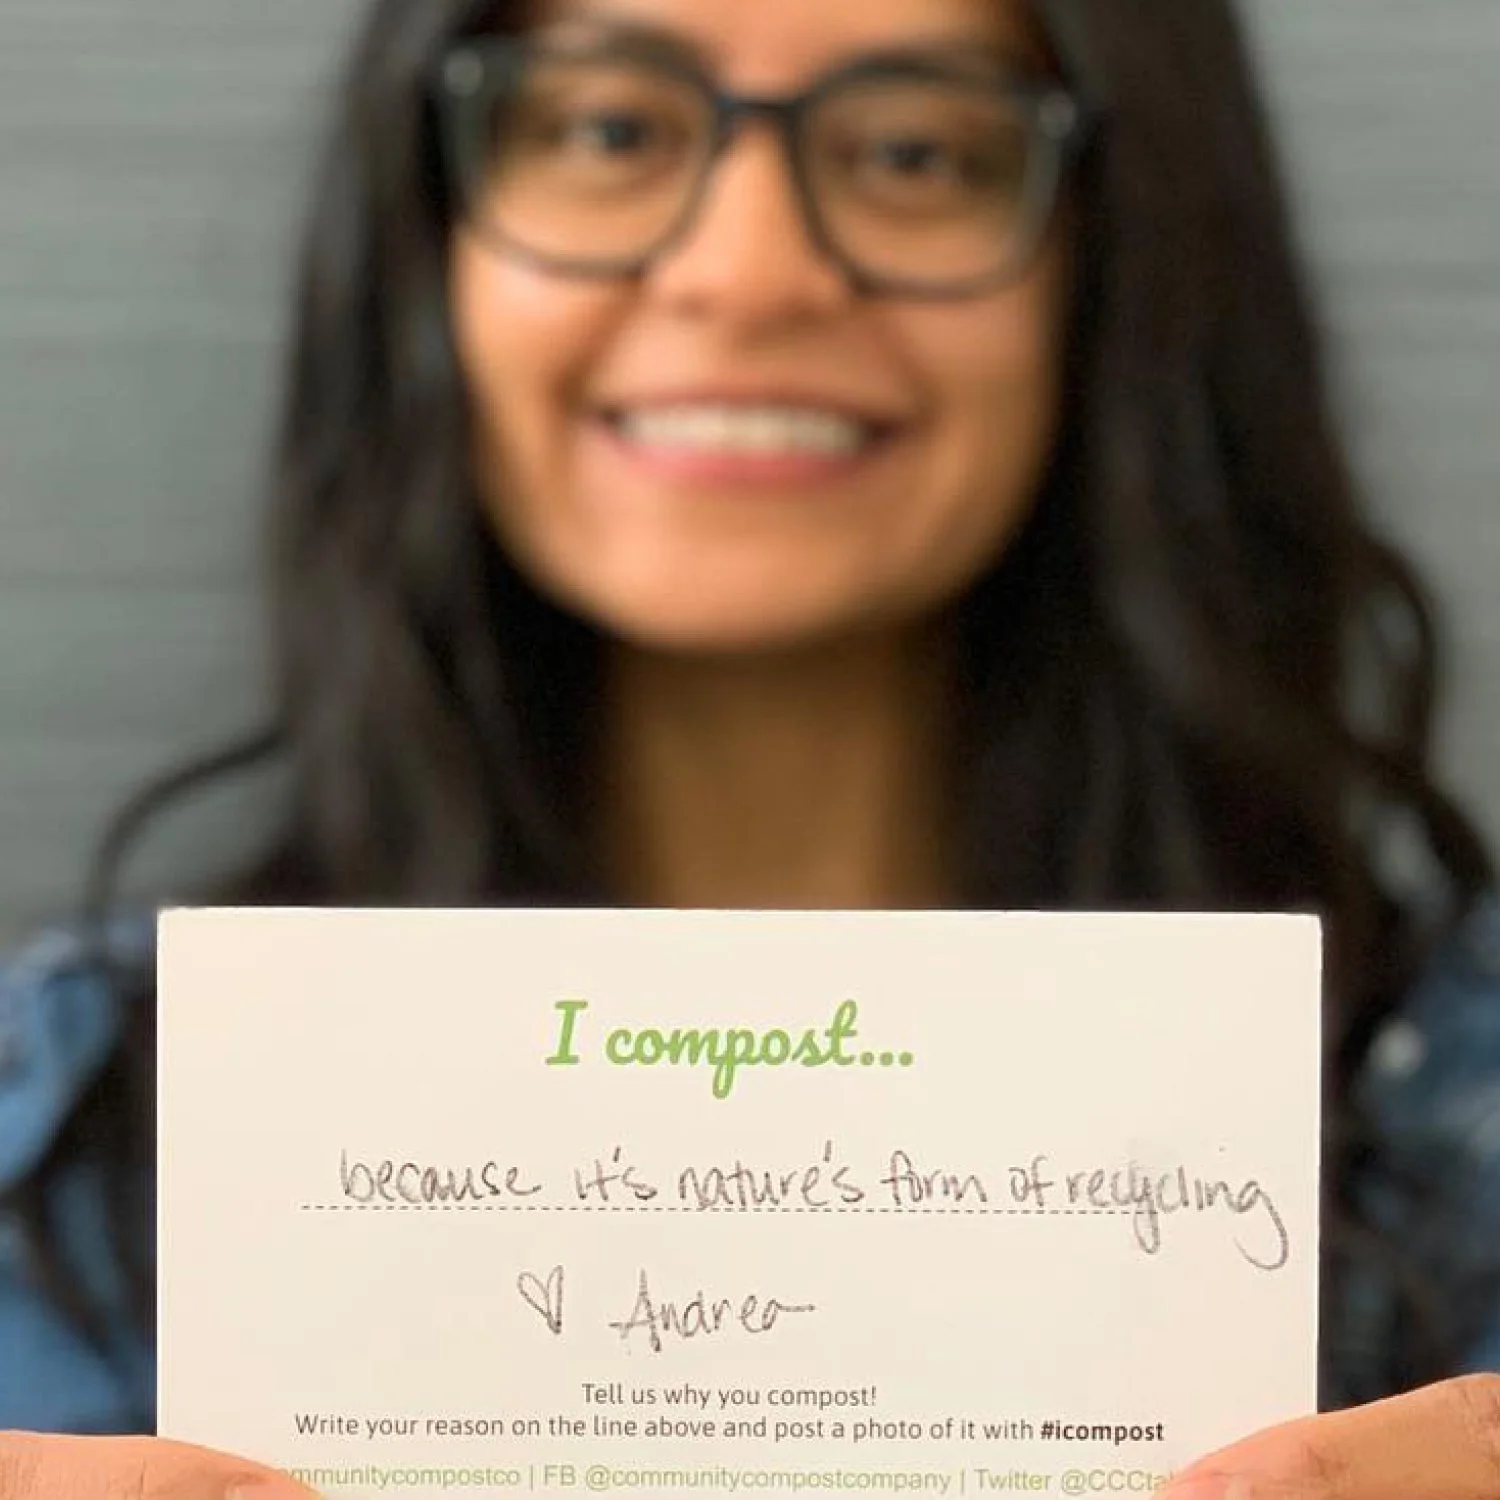 I compost...
because it's nature's form of recycling
♡ Andrea
Tell us why you compost!
Write your reason on the line above and post a photo of it with #icompost
| FB @communitycompostcompany | Twitter